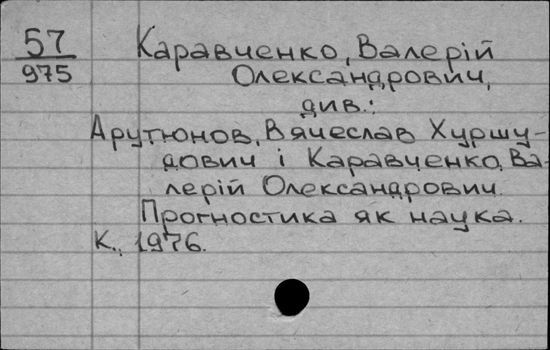 57
975
Каравченко, Валерій
Олександрович,
див.:
Арутюнов, Вячеслав Хуршу-
дович і Каравченко, Ва-
лерій Олександрович.
Прогностика як наука.
К., 1976.